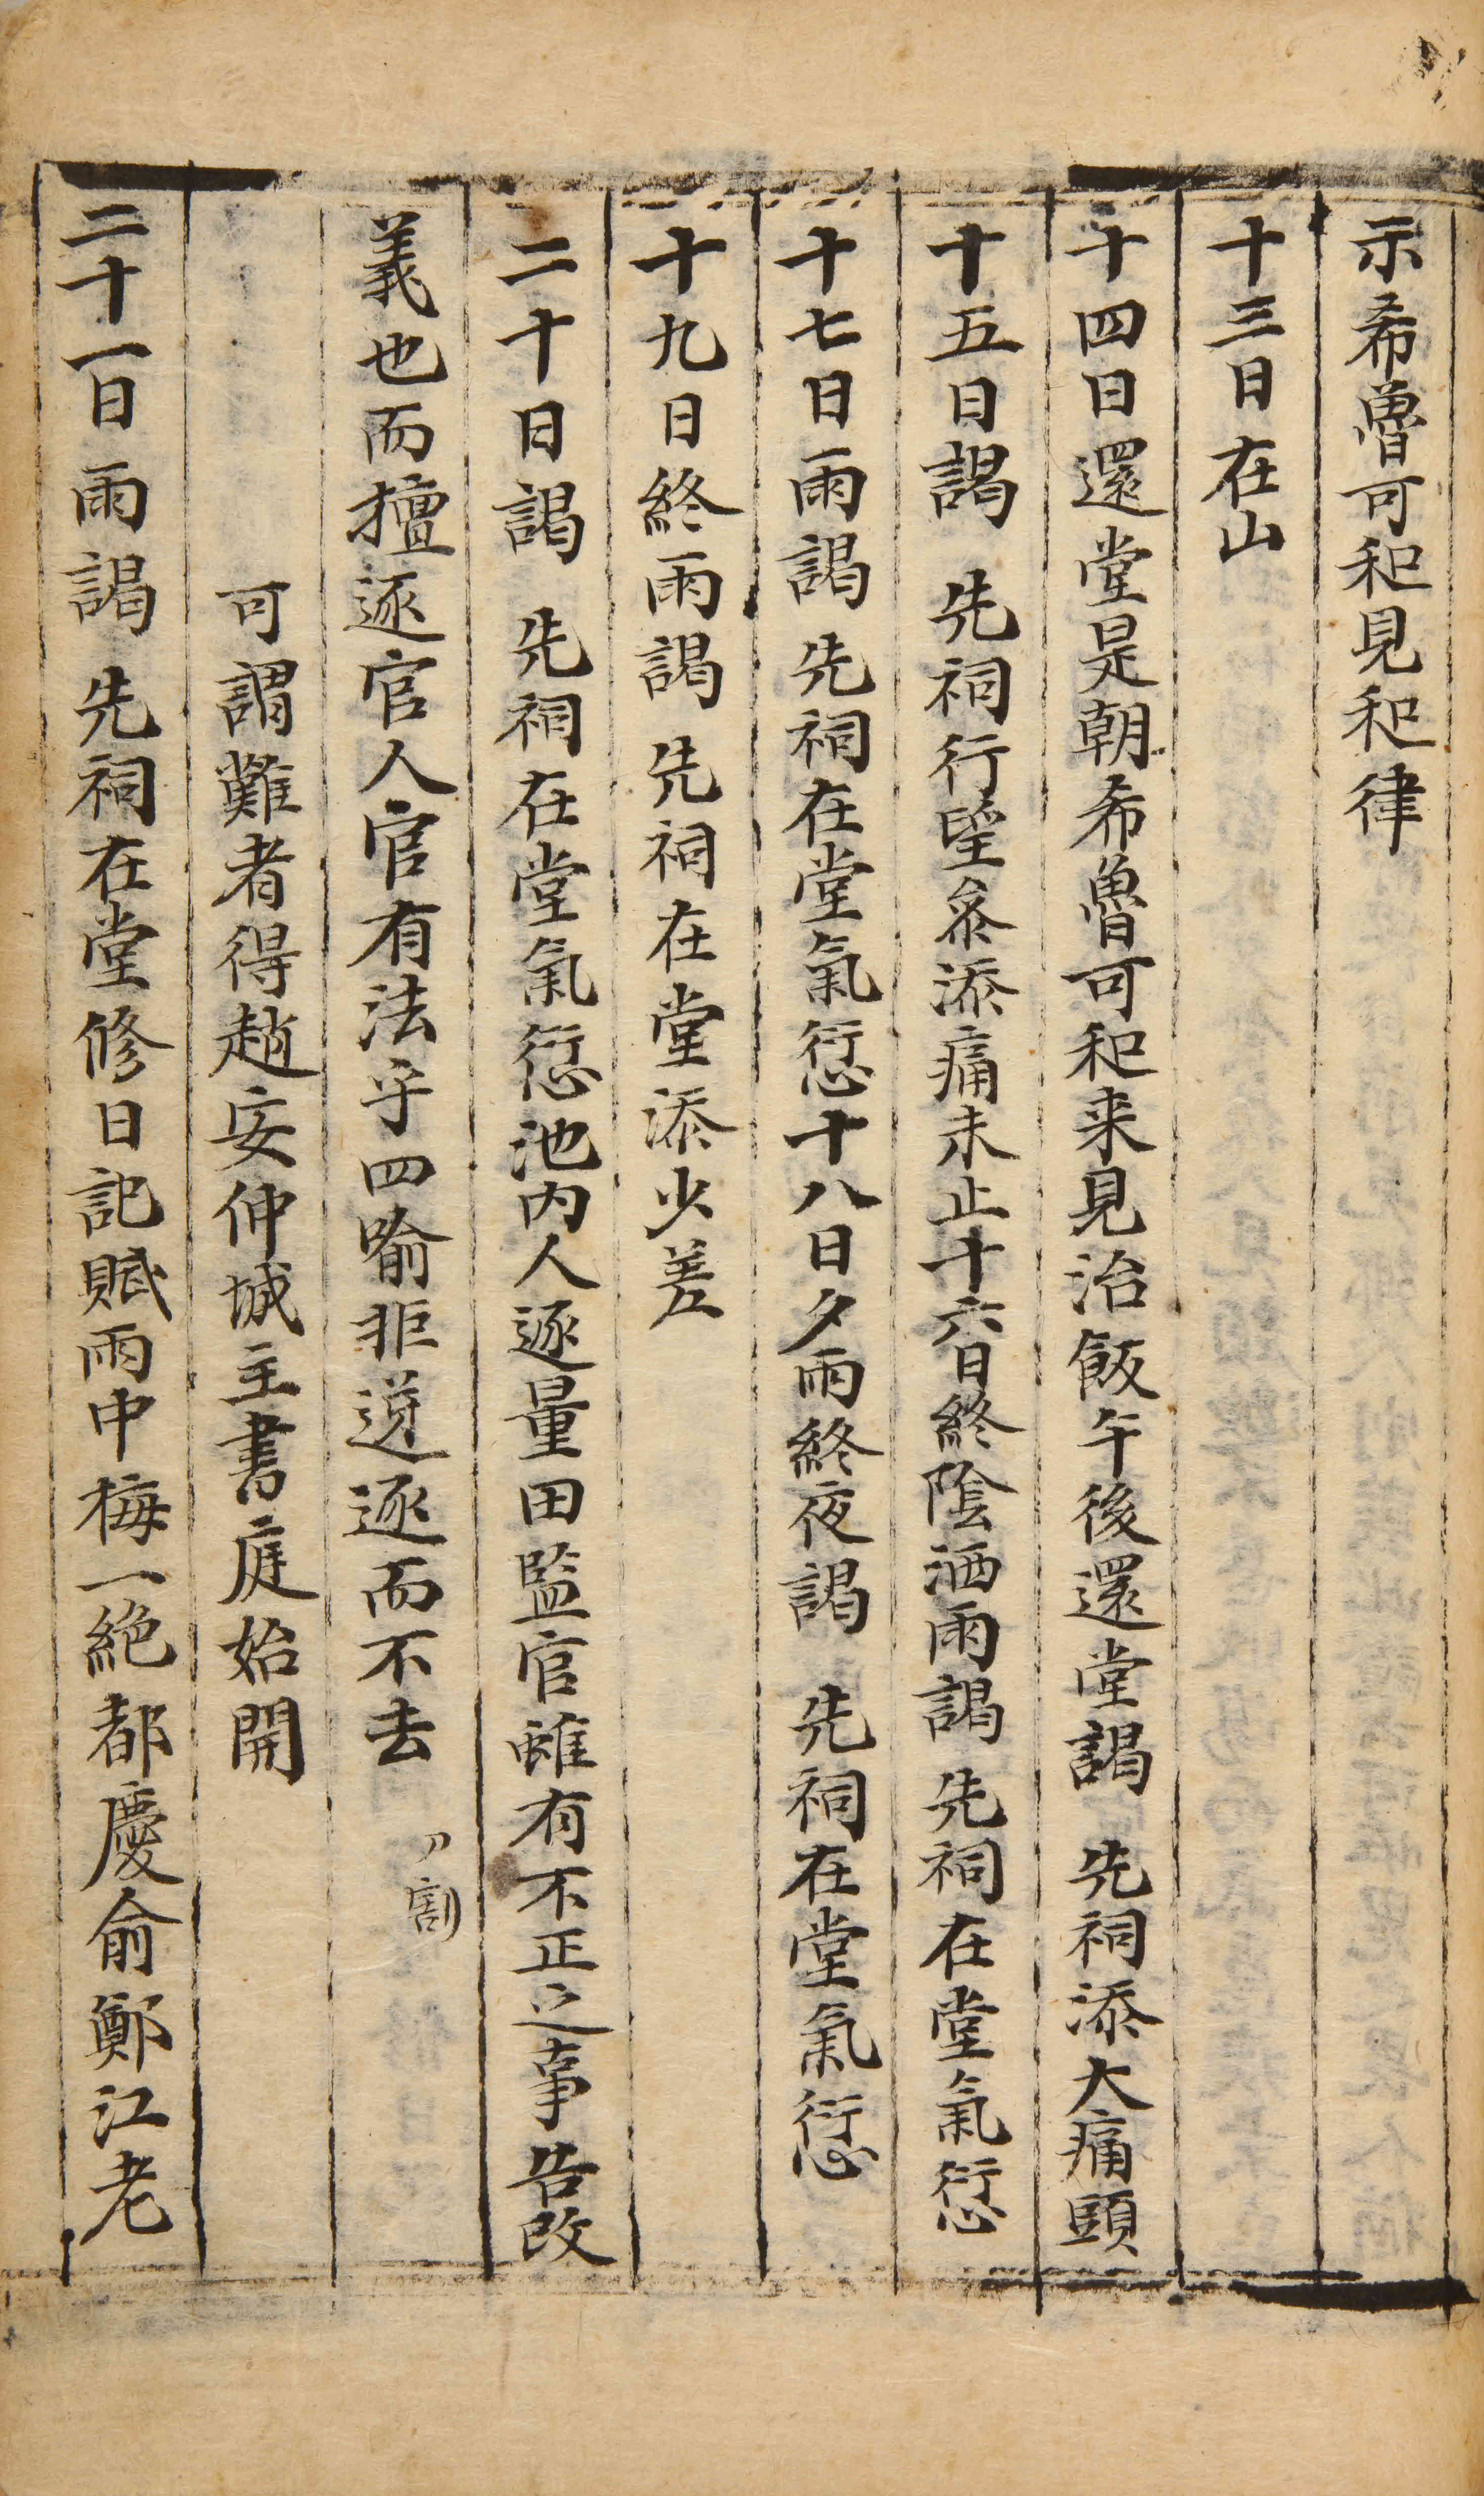 示希魯可和見和律
十三日在山
十四日還堂是朝希魯可和来見治飯午後還堂謁 先祠添大痛頭
十五日謁 先祠行望叅添痛未止十六日終陰洒雨謁 先祠在堂氣愆
十七日雨謁 先祠在堂氣愆十八日夕雨終夜謁 先祠在堂氣愆
十九日終雨謁 先祠在堂添少差
二十日謁 先祠在堂氣愆池内人逐量田監官雖有不正之事告改
義也而擅逐官人官有法乎四喻非逆逐而不去 割
可謂難者得趙安仲城主書庭始開
二十一日雨謁 先祠在堂修日記賦雨中梅一絶都慶俞鄭江老